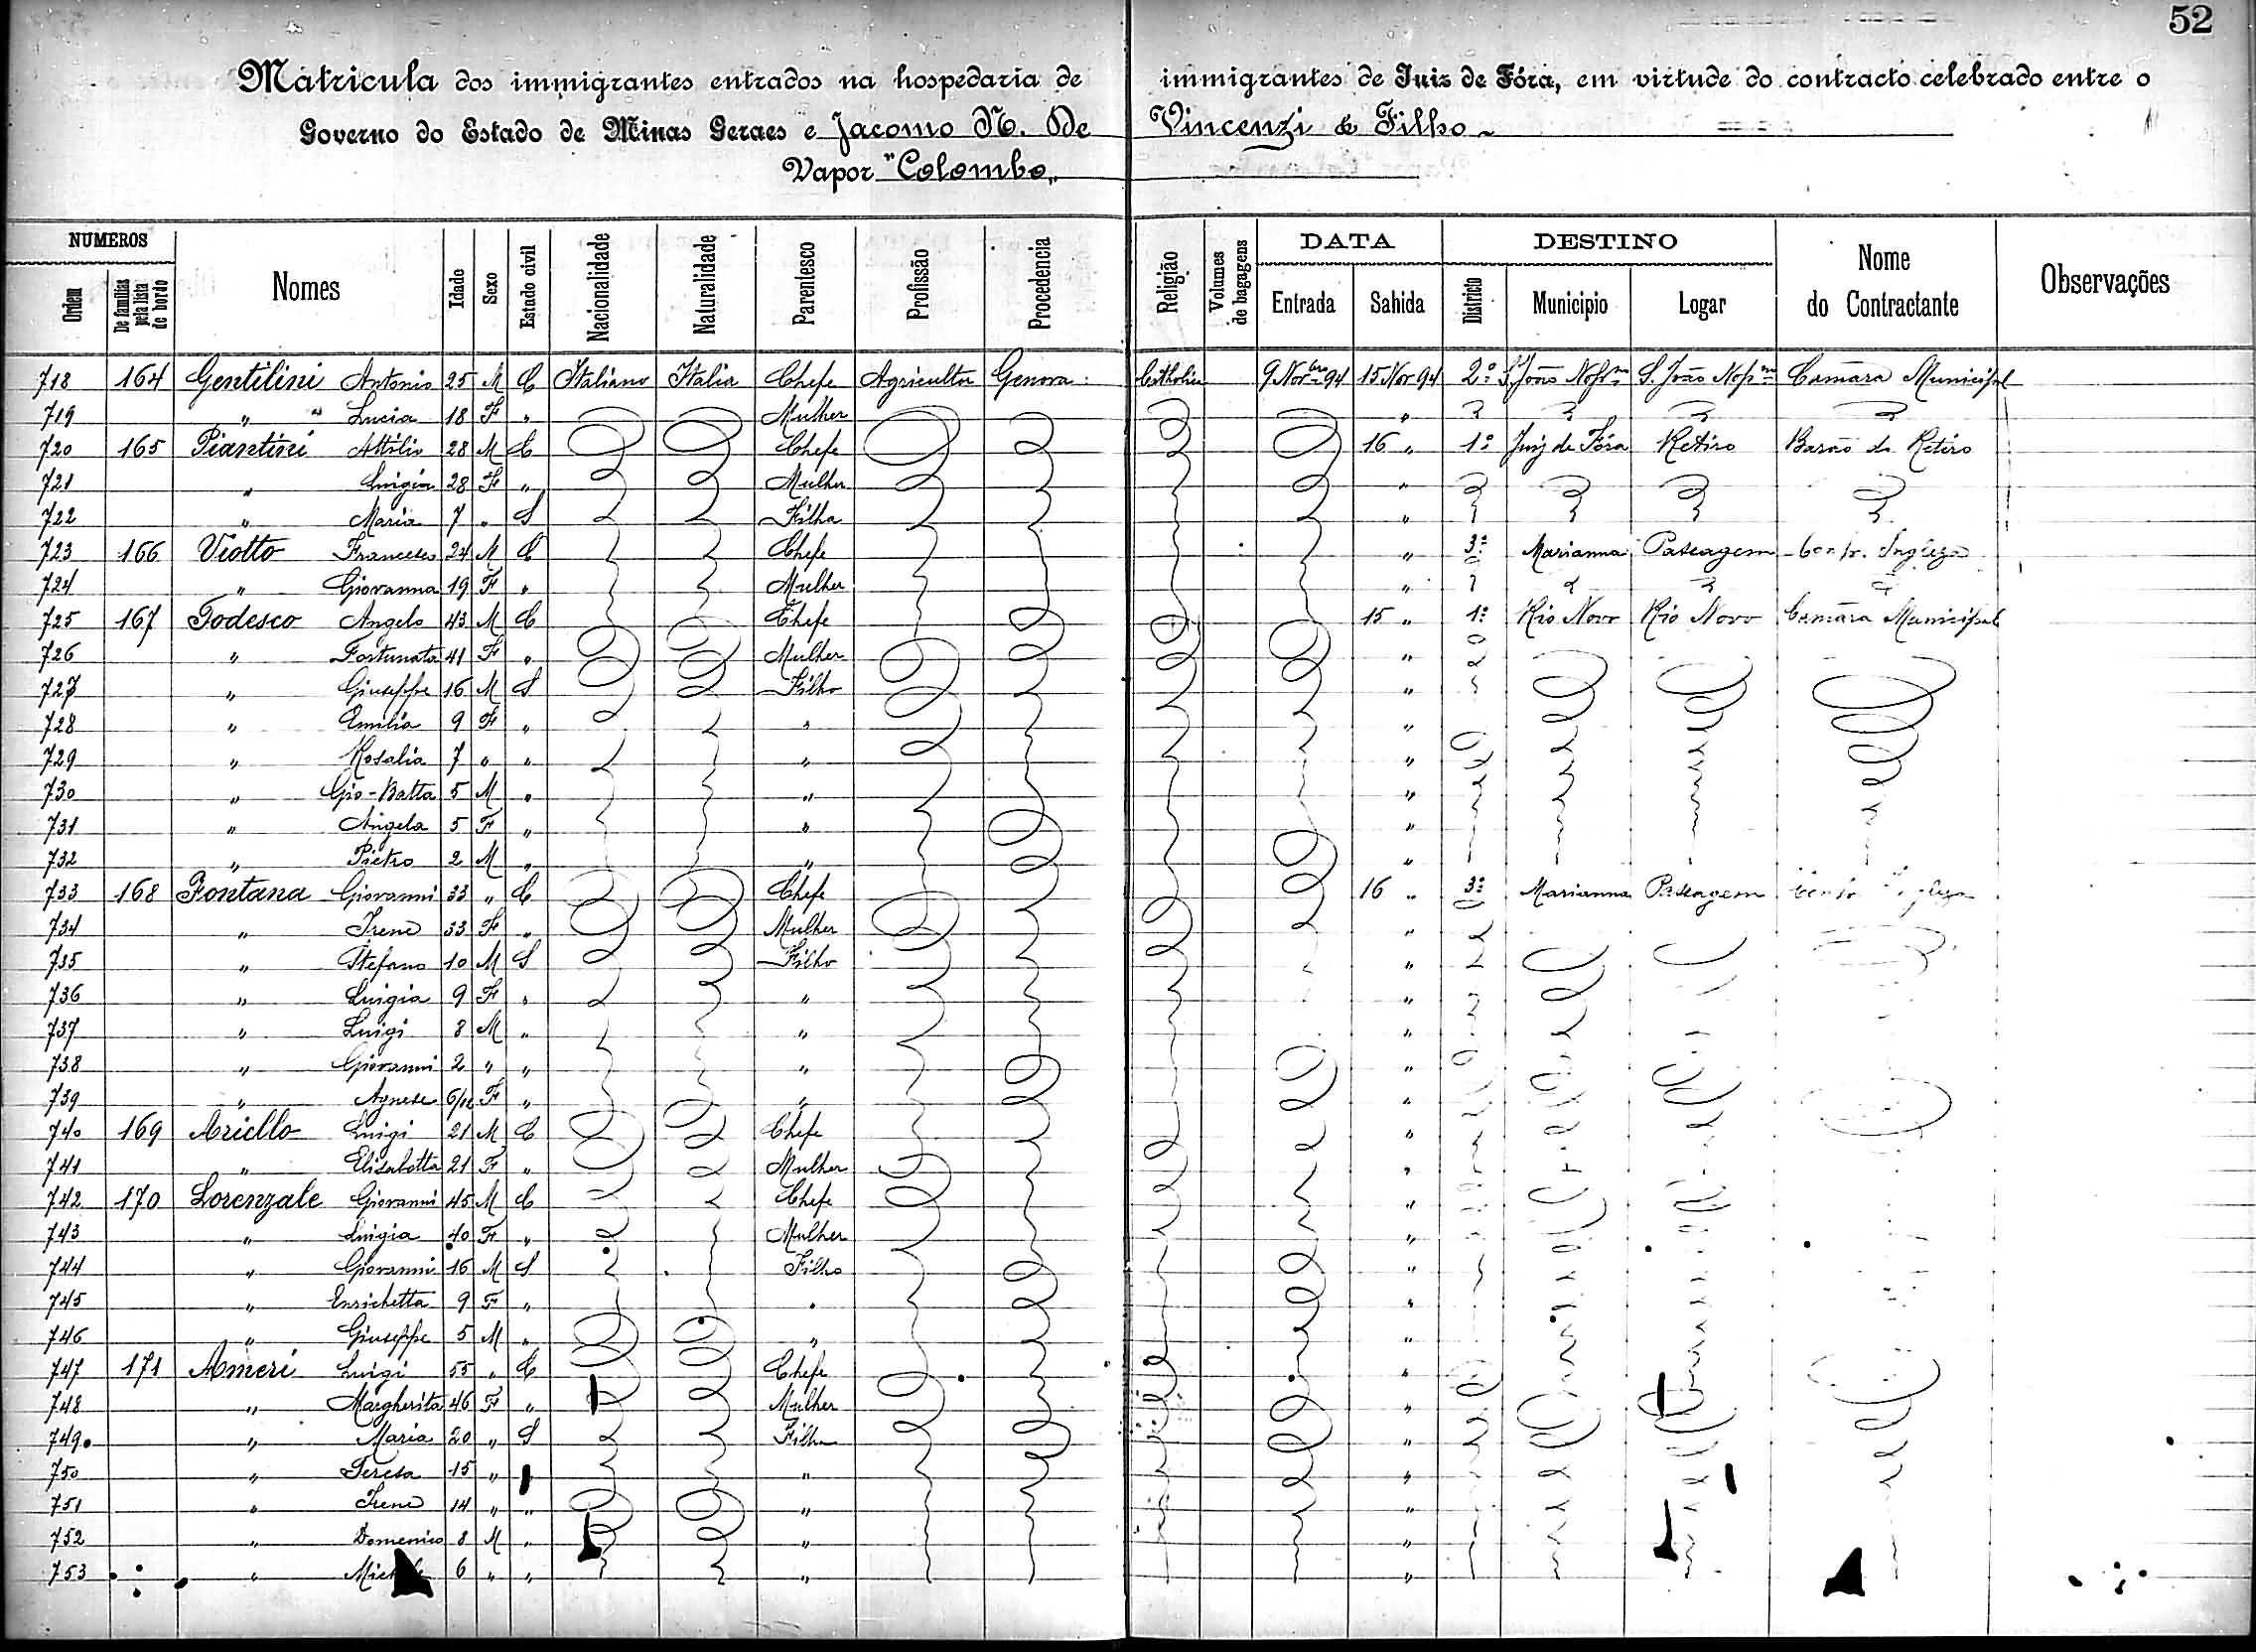 52
Matricula dos immigrantes entrados na hospedaria de immigrantes de Juiz de Fóra, em virtude do contracto celebrado entre o
Governo do Estado de Minas Geraes e Jacomo N. De Vincenzi & Filho
Vapor "Colombo"
NUMEROS DATA DESTINO
Ordem De familias pela lista de bordo Nomes Idade Sexo Estado civil Nacionalidade Naturalidade Parentesco Profissão Procedencia Religião Volumes de bagagens Entrada Sahida Districto Municipio Logar Nome do Contractante Observações
718 164 Gentilini Antonio 25 M C Italiano Italia Chefe Agricultor Genova Catholica 9 Novbro 94 15 Nov 94 2º S. João Nepm S. João Nepm Camara Municipal
719 " " Lucia 18 F " Mulher "
720 165 Piantini Attilio 28 M C Chefe 16 " 1º Juiz de Fóra Retiro Barão do Retiro
721 " Luigia 28 F " Mulher "
722 " Maria 7 " S Filha "
723 166 Viotto Francesco 24 M C Chefe " 3º Marianna Passagem Ingleza
724 " Giovanna 19 F " Mulher "
725 167 Todesco Angelo 43 M C Chefe 15 " 1º Rio Novo Rio Novo Camara Municipal
726 " Fortunata 41 F " Mulher "
727 " Giuseppe 16 M S Filho "
728 " Emilia 9 F " " "
729 " Rosalia 7 " " " "
730 " Gio-Batta 5 M " " "
731 " Angela 5 F " " "
732 " Pietro 2 M " " "
733 168 Fontana Giovanni 33 " C Chefe 16 " 3º Marianna Passagem
734 " Irene 33 F " Mulher "
735 " Stefano 10 M S Filho "
736 " Luigia 9 F " " "
737 " Luigi 8 M " " "
738 " Giovanni 2 " " " "
739 " Agnese 6/12 F " " "
740 169 Ariello Luigi 21 M C Chefe "
741 " Elisabetta 21 F " Mulher "
742 170 Lorenzale Giovanni 45 M C Chefe "
743 " Luigia 40 F " Mulher "
744 " Giovanni 16 M S Filho "
745 " Enrichetta 9 F " " "
746 " Giuseppe 5 M " " "
747 171 Ameri Luigi 55 " C Chefe "
748 " Margherita 46 F " Mulher "
749 " Maria 20 " S Filha "
750 " Teresa 15 " " "
751 " Irene 14 " " " "
752 " Domenico 8 M " " "
753 " 6 " " " "